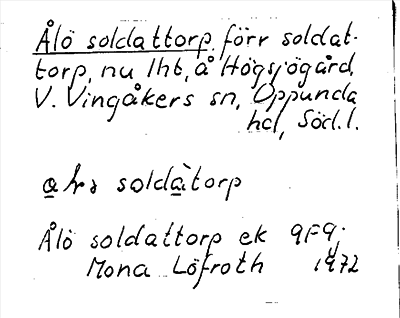 Ålö soldattorp, förr soldat-
torp, nu lht, å Högsjögård,
V. Vingåkers sn, Oppunda
hd, Söd. l.
soldàtorp
Ålö soldattorp ek 9F9j.
Mona Löfroth 1972